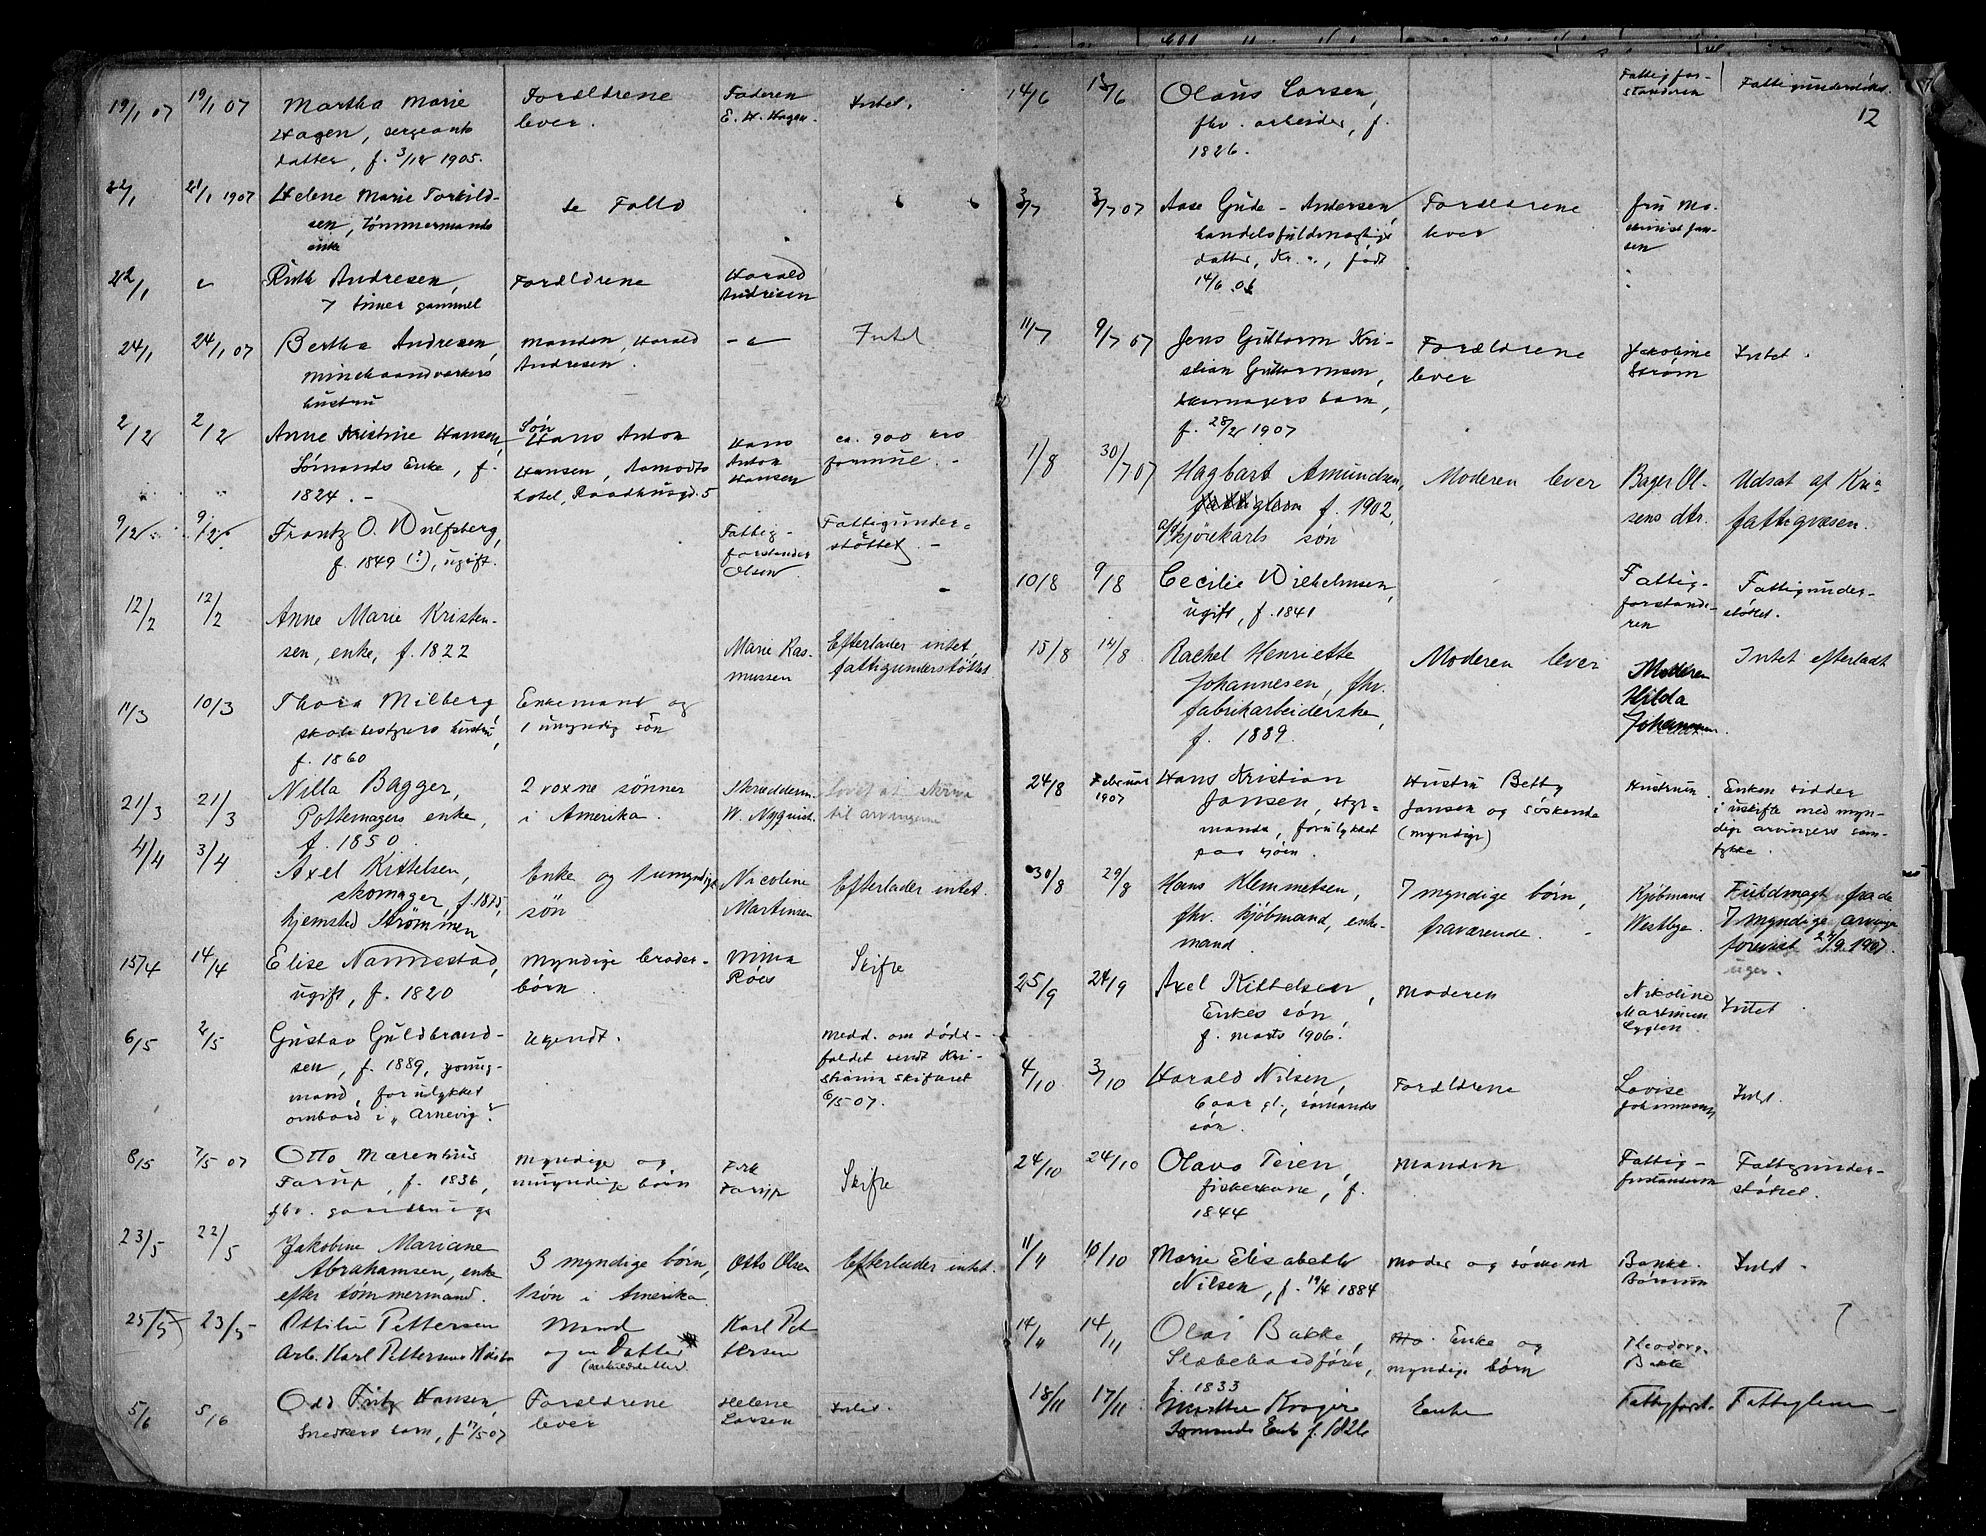 19/1 07 19/1 07 Martha Marie Forældrene Faderen Intet.
Hagen, sergeants lever. E. H. Hagen.
datter, f. 3/12 1905.
22/1 21/1 1907 Helene Marie Torkild-
sen, tømmermands
enke
22/1 Ruth Andresen, Forældrene Harald
7 timer gammel Andresen
24/1 24/1 07 Bertha Andresen, Manden, Harald Intet
hustru Andresen.
2/2 2/2 Anne Kristine Hansen, Søn
Hans Anton Hans ca. 900 kro
Sømands Enke, f. Hansen, Aamodts Anton formue. -
1824. - hotel, Raadhusgd. 5 Hansen
9/2 9/2 Frantz O. Wulfsberg, Fattig- Fattigunder-
f. 1849 (?), ugift. forstander støttet. -
Olsen
12/2 12/2 Anne Marie Kristen-
sen, enke, f. 1822 Marie Ras- Efterlader intet,
mussen fattigunderstøttet
11/3 10/3 Thora Milberg Enkemand og
skolebestyrers hustru, 1 umyndig søn
f. 1860
21/3 21/3 Nilla Bagger, 2 voxne sønner Skrædderm. lovet at skrive
Pottemagers enke, i Amerika. W. Nyquist. til arvingerne
f. 1850.
4/4 3/4 Axel Kittelsen, Enke og 1 umyndig Nicoline Efterlader intet.
skomager, f. 1875, søn Martinsen
hjemsted Strømmen
15/4 14/4 Elise Nannestad, Myndige broder- Mina Skifte
ugift, f. 1820 børn. Røed
6/5 2/5 Gustav Guldbrand- Ugendt. Medd. om døds-
sen, f. 1889, young- faldet sendt Kri-
mand, forulykket stiania skifteret
ombord i "Arnevig". 6/5 07.
8/5 7/5 07 Otto Mærentius Myndige og Skifte
Farup, f. 1836, umyndige børn Farup
fhv.
23/5 22/5 Jakobine Mariane 3 myndige børn, Otto Olsen Efterlader intet.
Abrahamsen, enke 1 søn i Amerika.
efter tømmermand.
25/5 23/5 Ottilie Pettersen Mand Karl Pet-
Arb. Karl Pettersens Hustru og en Datter tersen
5/6 5/6 Odd Fritz Hansen, Forældrene Helene Intet.
Snedkers barn, f. 17/5 07 lever Larsen
14/6 13/6 Olaus Larsen, Fattigfor- Fattigunderstøttet.
fhv. arbeider, f. standeren 12
1826.
3/7 3/7 07 Aase Gude-Andersen, Forældrene Fru Ma-
handelsfuldmægtigs lever skinist Jan-
datter, Kr. a., født sen
14/6 06
11/7 9/7 07 Jens Guttorm Kri- Forældrene Jakobine Intet.
stian Guttormsen, lever Strøm
skomagers barn,
f. 28/2 1907
1/8 30/7 07 Hagbart Amundsen, Moderen lever Bager Ol- Udsat af Kr.a
f. 1902, sens dtr. fattigvæsen.
kjørekarls søn
10/8 9/8 Cecilie Wilhelmsen, Fattig- Fattigunder-
ugift, f. 1841 forstande- støttet.
ren
15/8 14/8 Rachel Henriette Moderen lever Moderen Intet efterladt
Johannesen, fhv. Hilda
fabrikarbeiderske, Johannesen.
f. 1889.
24/8 Februar Hans Kristian Hustru Betty Hustruen. Enken sidder
1907 Jansen, styr- Jansen og søskende i uskifte med myn-
mand, forulykket (myndige) dige arvingers sam-
paa sjøen. tykke.
30/8 29/8 Hans Klemmetsen, 7 myndige børn, Kjøbmand Fuldmagt fra de
fhv. kjøbmand, enke- fraværende. Westbye. 7 myndige arvinge
mand forevist 27/9 1907.
25/9 24/9 Axel Kittelsen, Moderen Nikoline Intet.
Enkes søn, Martinsen
f. marts 1906.
4/10 3/10 Harald Nilsen, Forældrene Lovise Intet.
6 aar gl., sømands Johannesen
søn.
24/10 24/10 Olava Teien, Manden Fattig- Fattigunder-
fiskerkone, f. forstanderen støttet.
1844
11/11 10/10 Marie Elisabeth Moder og søskende Intet.
Nilsen, f. 19/4 1884
14/11 14/11 Olai Bakke, Enke og Theodor
Slæbebaadfører, myndige børn Bakke
f. 1833
18/11 17/11 Kroger Enke Fattigforst. Fattiglem
Sømands Enke f. 1826